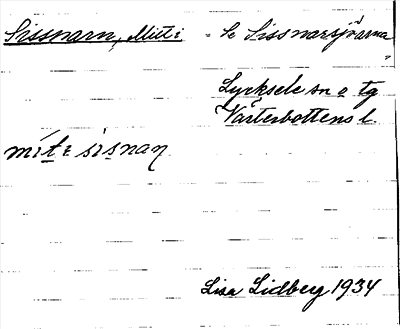 Sissnarn, Mitti - Se Sissnarsjöarna,
Lycksele sn o tg
Västerbottens l.
miti sisnaɳ
Lisa Lidberg 1934